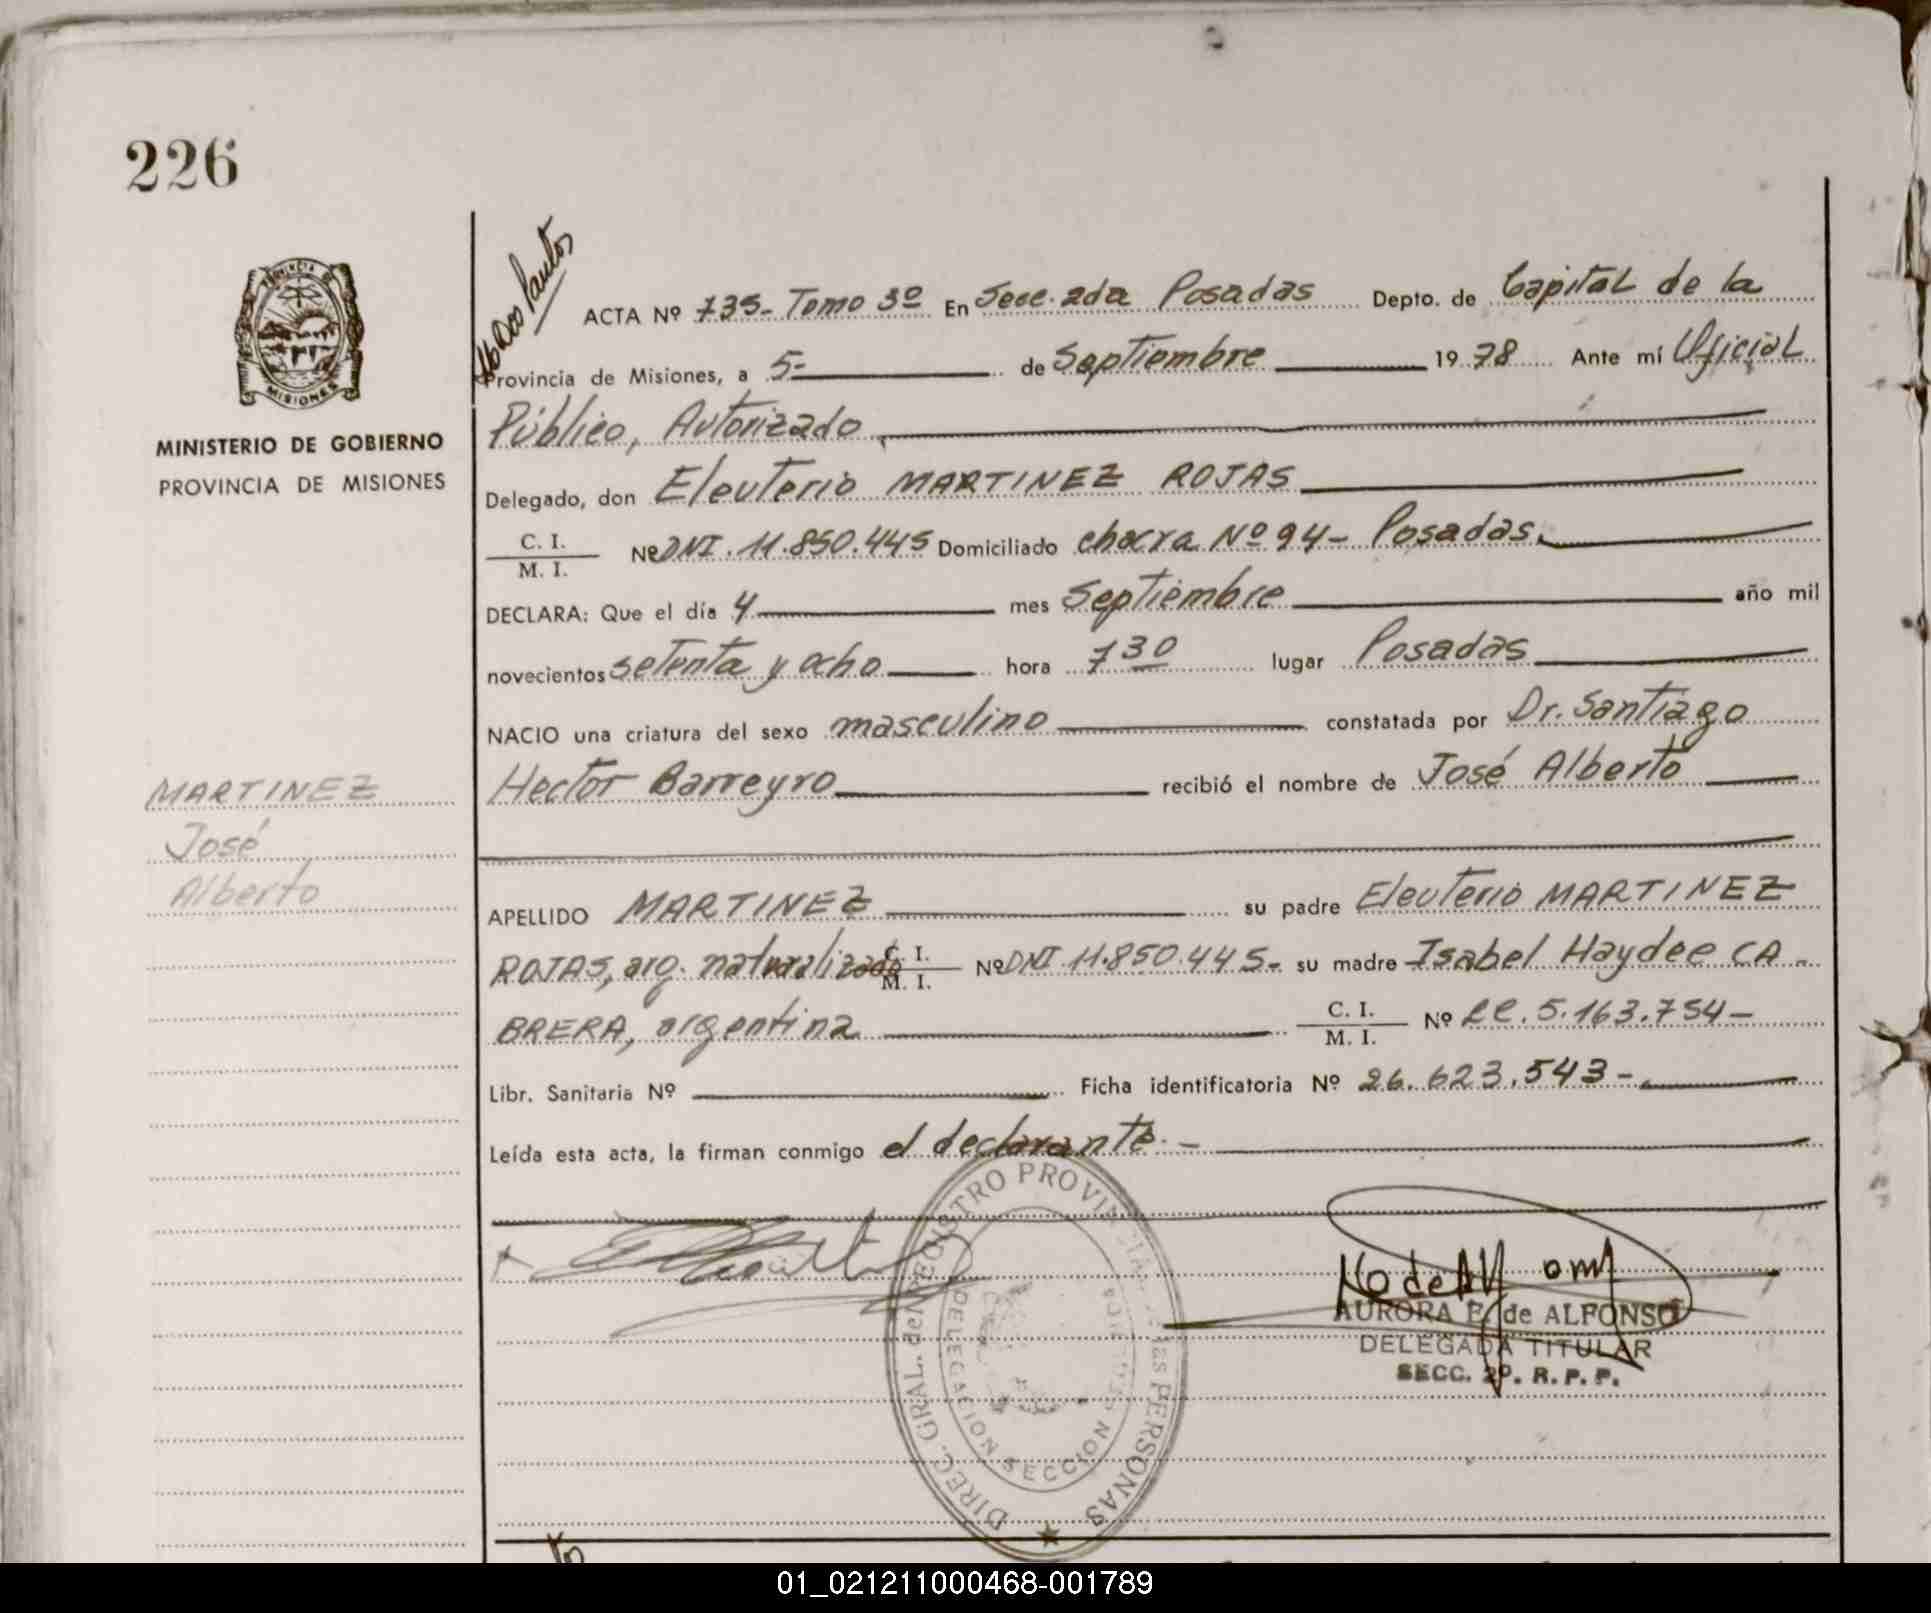 226
PROVINCIA DE
MISIONES
MINISTERIO DE GOBIERNO
PROVINCIA DE MISIONES
MARTINEZ
José
Alberto
ACTA Nº 735- Tomo 3º En Secc. 2da Posadas Depto. de Capital de la
Provincia de Misiones, a 5- de Septiembre 19 78 Ante mí Oficial
Público, Autorizado
Delegado, don Eleuterio MARTINEZ ROJAS
C. I.
M. I. Nº DNI. 11.850.445 Domiciliado chacra Nº 94- Posadas.
DECLARA: Que el día 4 mes Septiembre año mil
novecientos setenta y ocho hora 7 30 lugar Posadas
NACIO una criatura del sexo masculino constatada por Dr. Santiago
Hector Barreyro recibió el nombre de José Alberto
APELLIDO MARTINEZ su padre Eleuterio MARTINEZ
ROJAS, arg. naturalizado C. I. M. I. Nº DNI 11.850.445- su madre Isabel Haydee CA-
BRERA, argentina C. I. M. I. Nº LC. 5.163.754-
Libr. Sanitaria Nº Ficha identificatoria Nº 26.623.543-
Leída esta acta, la firman conmigo el declarante.-
DIREC. GRAL. del REGISTRO PROVINCIAL de las PERSONAS
DELEGACION SECCION
AURORA F. de ALFONSO
DELEGADA TITULAR
SECC. 2º. R. P. P.
01_021211000468-001789